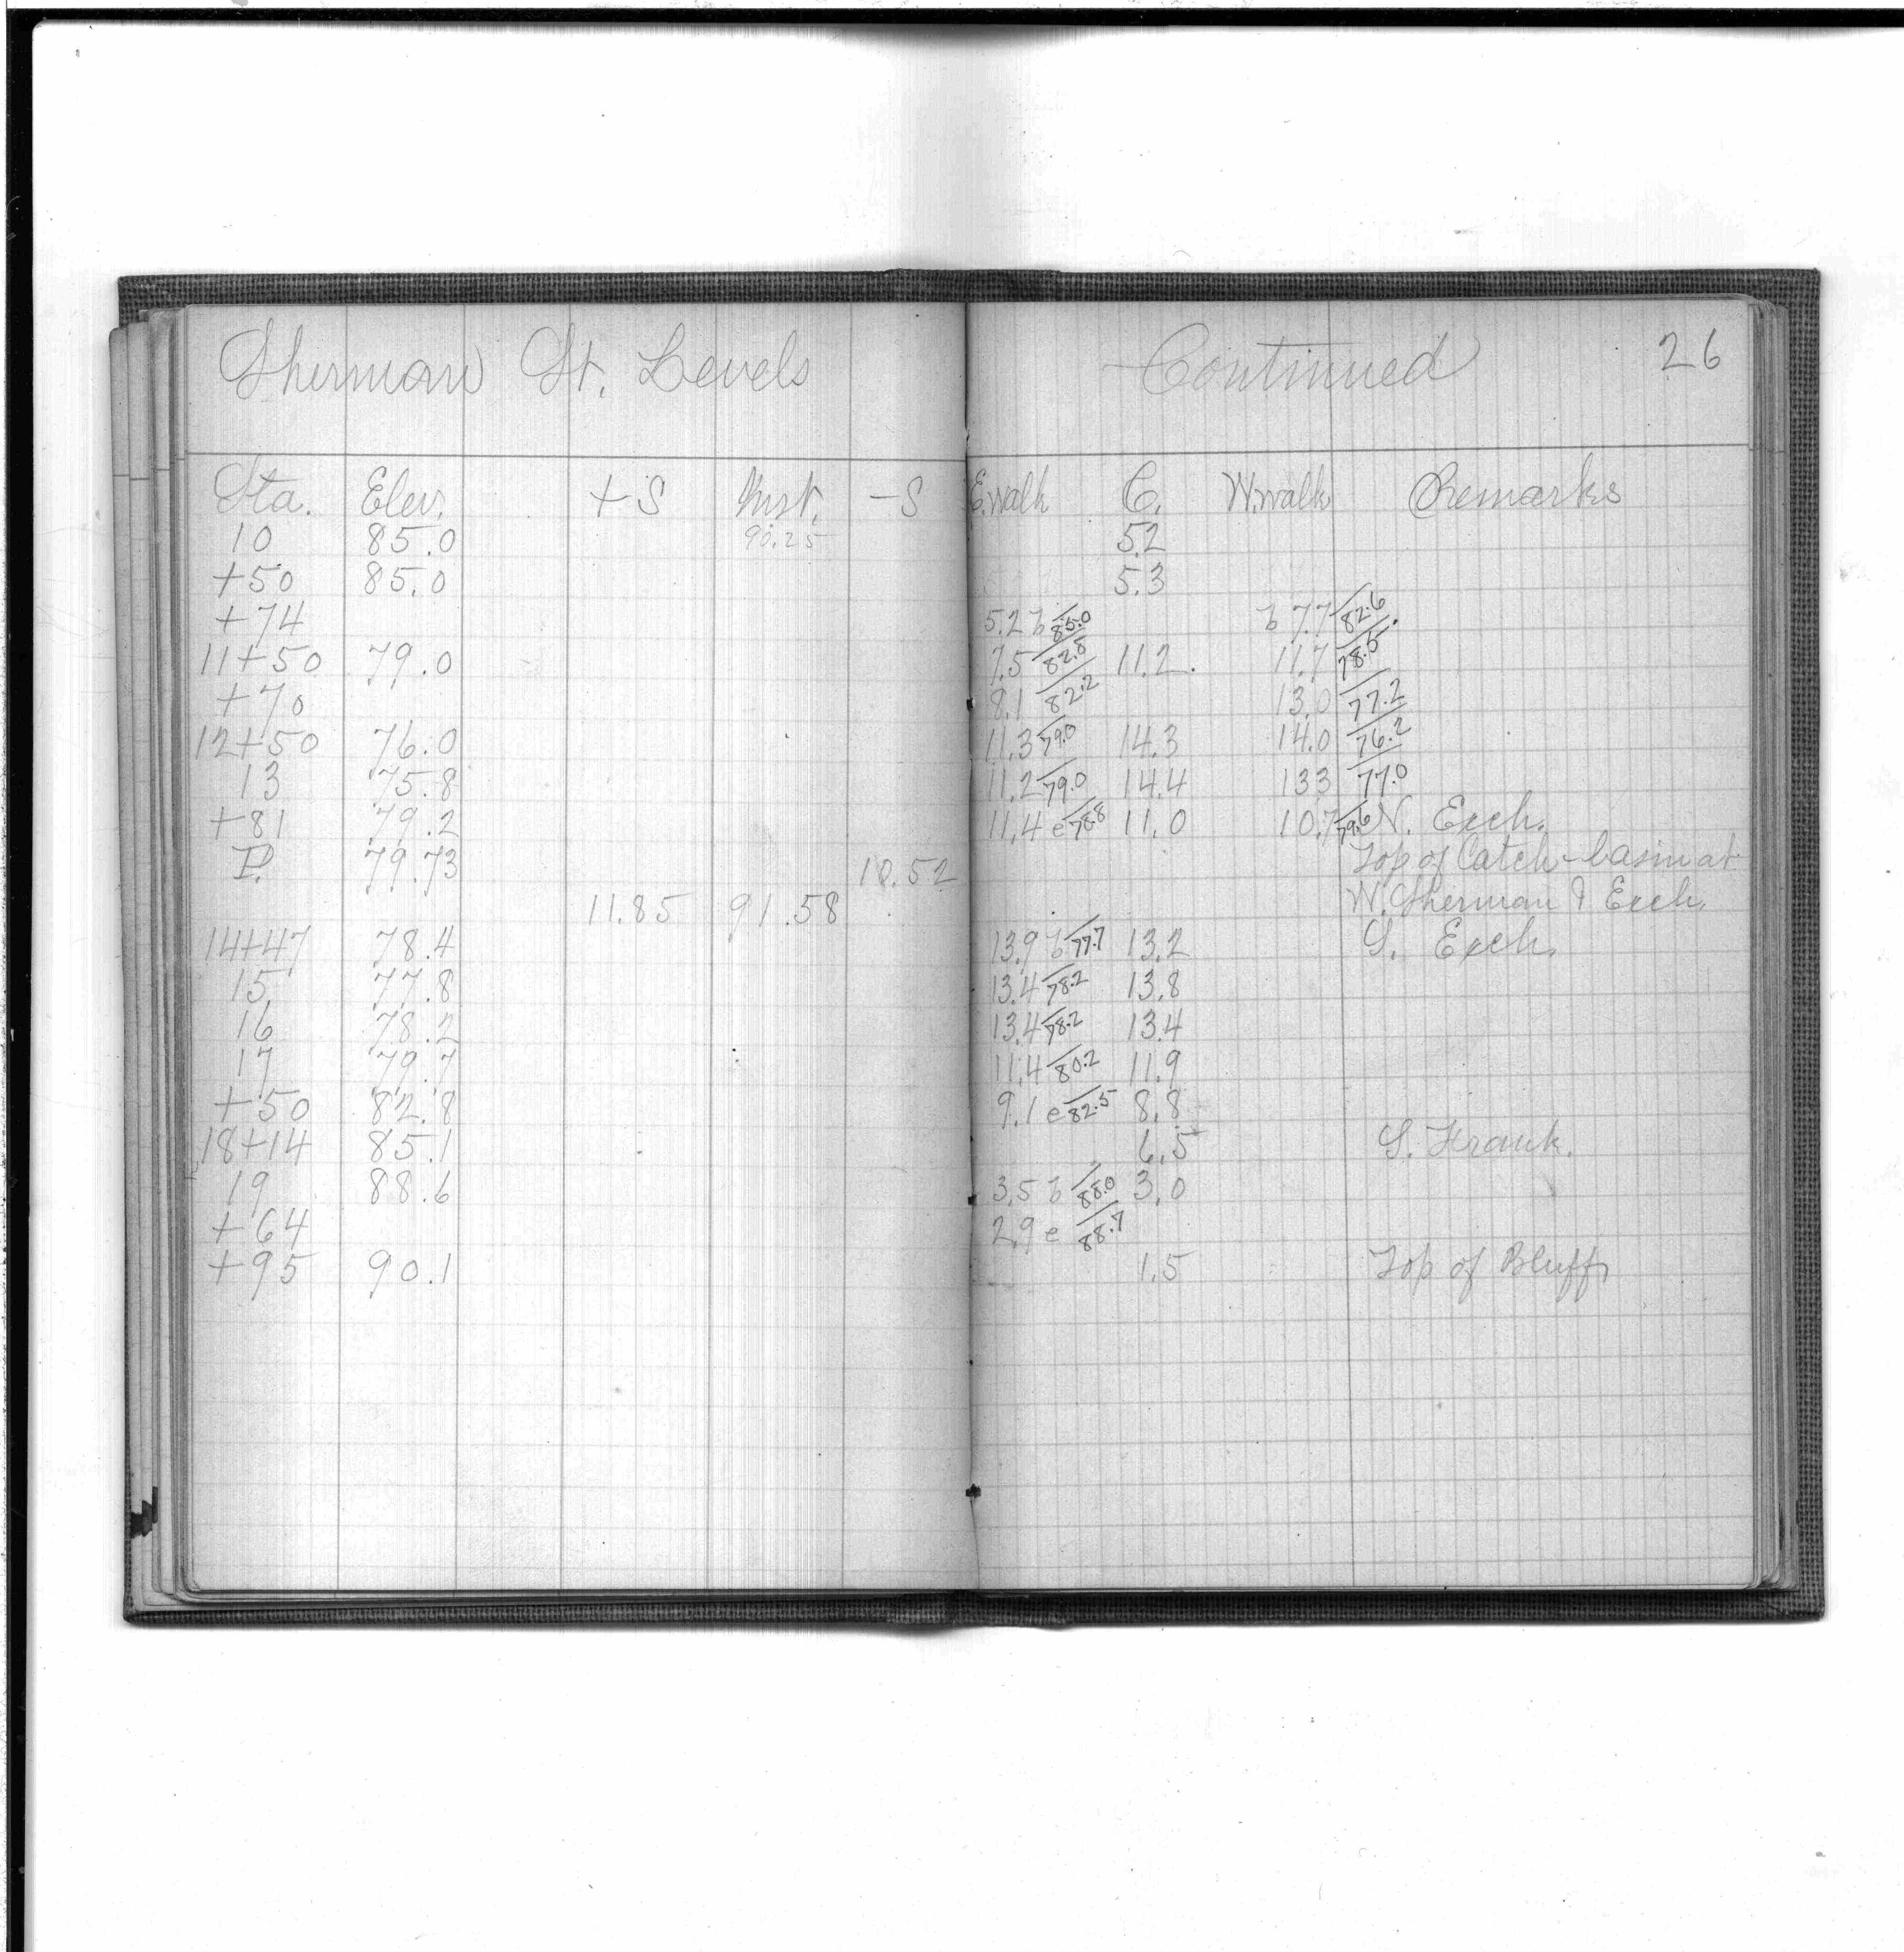 Sherman St. Levels Continued 26
Sta. Elev. +S Inst. -S E.walk C. W.walk Remarks
10 85.0 90.25 5.2
+50 85.0 5.3
+74 5.2 b 85.0 b 7.7 82.6
11+50 79.0 7.5 82.8 11.2 11.7 78.5
+70 8.1 82.2 13.0 77.2
12+50 76.0 11.3 79.0 14.3 14.0 76.2
13 75.8 11.2 79.0 14.4 133 77.0
+81 79.2 11.4 e 78.8 11.0 10.7 79.6 N. Exch.
P. 79.73 10.52 Top of Catch-basin at
11.85 91.58 W. Sherman & Exch.
14+47 78.4 13.9 b 77.7 13.2 S. Exch.
15 77.8 13.4 78.2 13.8
16 78.2 13.4 78.2 13.4
17 79.7 11.4 80.2 11.9
+50 82.8 9.1 e 82.5 8.8
18+14 85.1 6.5 S. Frank.
19 88.6 3.5 b 88.0 3.0
+64 2.9 e 88.7
+95 90.1 1.5 Top of Bluff